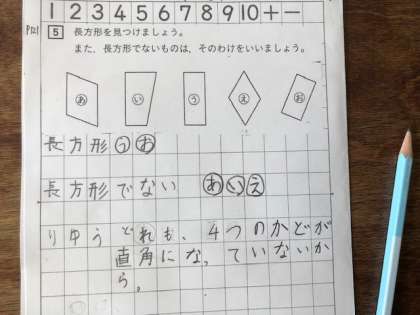 1 2 3 4 5 6 7 8 9 10 + −
P121
5 長方形を見つけましょう。
また、長方形でないものは、そのわけをいいましょう。
あ い う え お
長方形 う お
長方形でない あ い え
りゆう どれも、4つのかどが
直角になっていないか
ら。